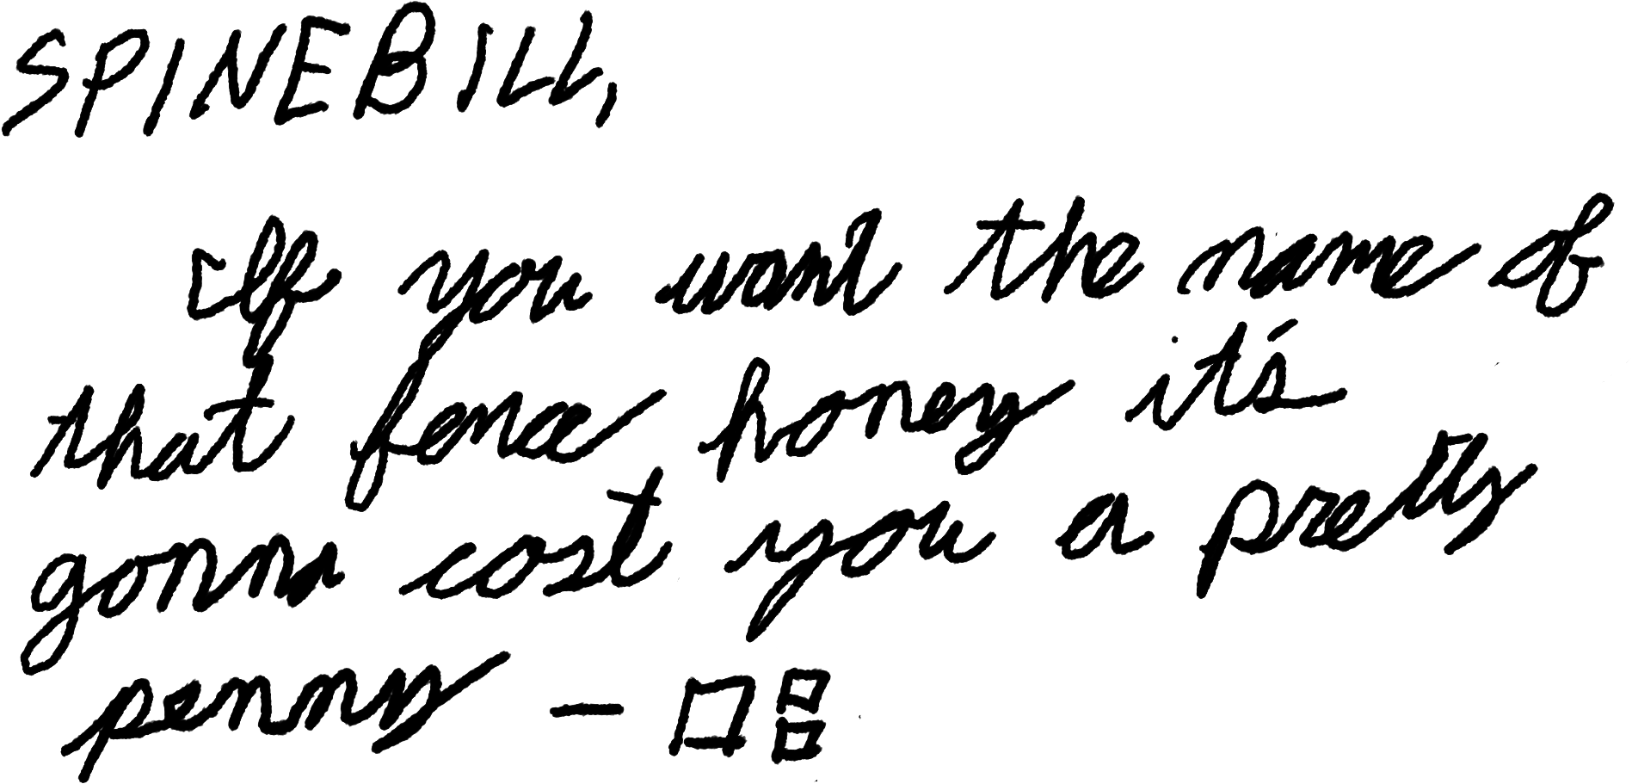 SPINEBILL,
If you want the name of
that fence honey it's
gonna cost you a pretty
penny -